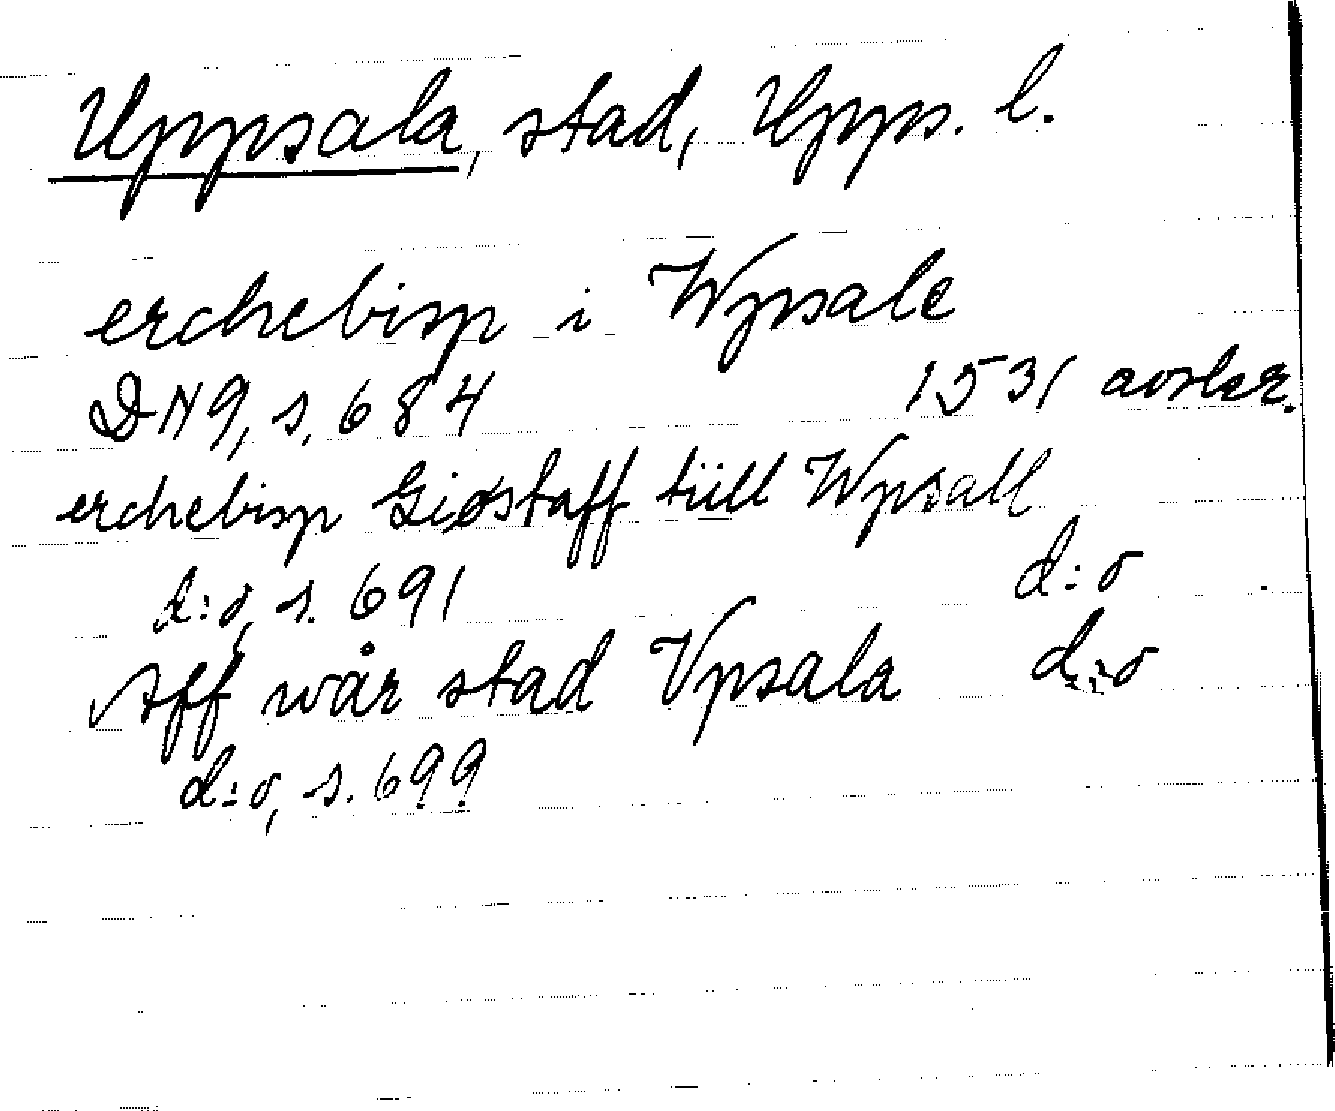 Uppsala, stad, Upps. l.
erchebisp i Wpsale
DN 9, s. 684 1531 avskr.
erchebisp Giøstaff tiill Wpsall
d:o, s. 691 d:o
Aff wår stad Vpsala d:o
d:o, s. 699